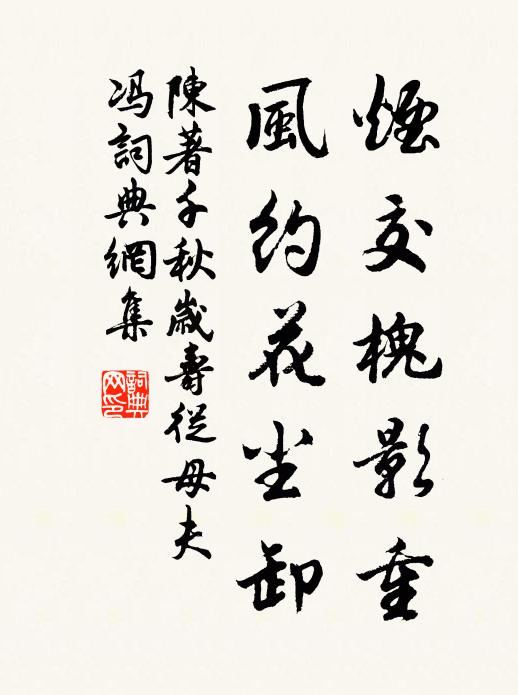 煙交槐影重
風約花尘卸
陳著千秋歲壽從母夫
冯詞典網集
詞典
网印